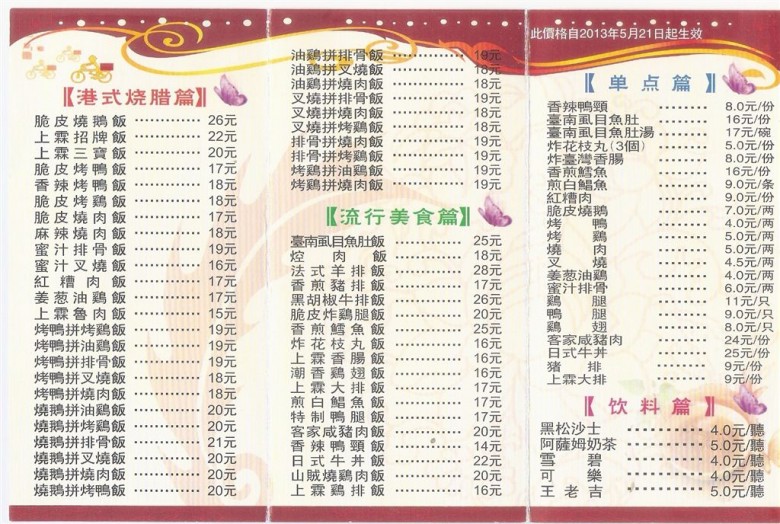 【港式烧腊篇】
脆皮燒鵝飯 ………… 26元
上霖招牌飯 ………… 22元
上霖三寶飯 ………… 20元
脆皮烤鴨飯 ………… 17元
香辣烤鴨飯 ………… 18元
脆皮烤鷄飯 ………… 18元
脆皮燒肉飯 ………… 17元
麻辣燒肉飯 ………… 18元
蜜汁排骨飯 ………… 19元
蜜汁叉燒飯 ………… 16元
紅糟肉飯 ………… 17元
姜葱油鷄飯 ………… 17元
上霖魯肉飯 ………… 15元
烤鴨拼烤鷄飯 ………… 19元
烤鴨拼油鷄飯 ………… 19元
烤鴨拼排骨飯 ………… 19元
烤鴨拼叉燒飯 ………… 18元
烤鴨拼燒肉飯 ………… 18元
燒鵝拼油鷄飯 ………… 20元
燒鵝拼烤鷄飯 ………… 20元
燒鵝拼排骨飯 ………… 21元
燒鵝拼叉燒飯 ………… 20元
燒鵝拼燒肉飯 ………… 20元
燒鵝拼烤鴨飯 ………… 20元
油鷄拼排骨飯 ………… 19元
油鷄拼叉燒飯 ………… 18元
油鷄拼燒肉飯 ………… 18元
叉燒拼排骨飯 ………… 19元
叉燒拼燒肉飯 ………… 18元
叉燒拼烤鷄飯 ………… 18元
排骨拼燒肉飯 ………… 19元
排骨拼烤鷄飯 ………… 19元
烤鷄拼油鷄飯 ………… 19元
烤鷄拼燒肉飯 ………… 19元
【流行美食篇】
臺南虱目魚肚飯 ………… 25元
焢肉飯 ………… 18元
法式羊排飯 ………… 28元
香煎豬排飯 ………… 17元
黑胡椒牛排飯 ………… 26元
脆皮炸鷄腿飯 ………… 20元
香煎鱈魚飯 ………… 25元
炸花枝丸飯 ………… 16元
上霖香腸飯 ………… 16元
潮香鷄翅飯 ………… 16元
上霖大排飯 ………… 17元
煎白鯧魚飯 ………… 17元
特制鴨腿飯 ………… 17元
客家咸豬肉飯 ………… 20元
香辣鴨頸飯 ………… 14元
日式牛丼飯 ………… 22元
山賊燒鷄肉飯 ………… 20元
上霖鷄排飯 ………… 16元
此價格自2013年5月21日起生效
【单点篇】
香辣鴨頸 ………… 8.0元/份
臺南虱目魚肚 ………… 16元/份
臺南虱目魚肚湯 ………… 17元/碗
炸花枝丸(3個) ………… 5.0元/份
炸臺灣香腸 ………… 8.0元/份
香煎鱈魚 ………… 16元/份
煎白鯧魚 ………… 9.0元/条
紅糟肉 ………… 9.0元/份
脆皮燒鵝 ………… 7.0元/两
烤鴨 ………… 4.0元/两
烤鷄 ………… 5.0元/两
燒肉 ………… 5.0元/两
叉燒 ………… 4.5元/两
姜葱油鷄 ………… 4.0元/两
蜜汁排骨 ………… 6.0元/两
鷄腿 ………… 11元/只
鴨腿 ………… 9.0元/只
鷄翅 ………… 8.0元/只
客家咸豬肉 ………… 24元/份
日式牛丼 ………… 25元/份
猪排 ………… 9元/份
上霖大排 ………… 9元/份
【饮料篇】
黑松沙士 ………… 4.0元/聽
阿薩姆奶茶 ………… 5.0元/聽
雪碧 ………… 4.0元/聽
可樂 ………… 4.0元/聽
王老吉 ………… 5.0元/聽